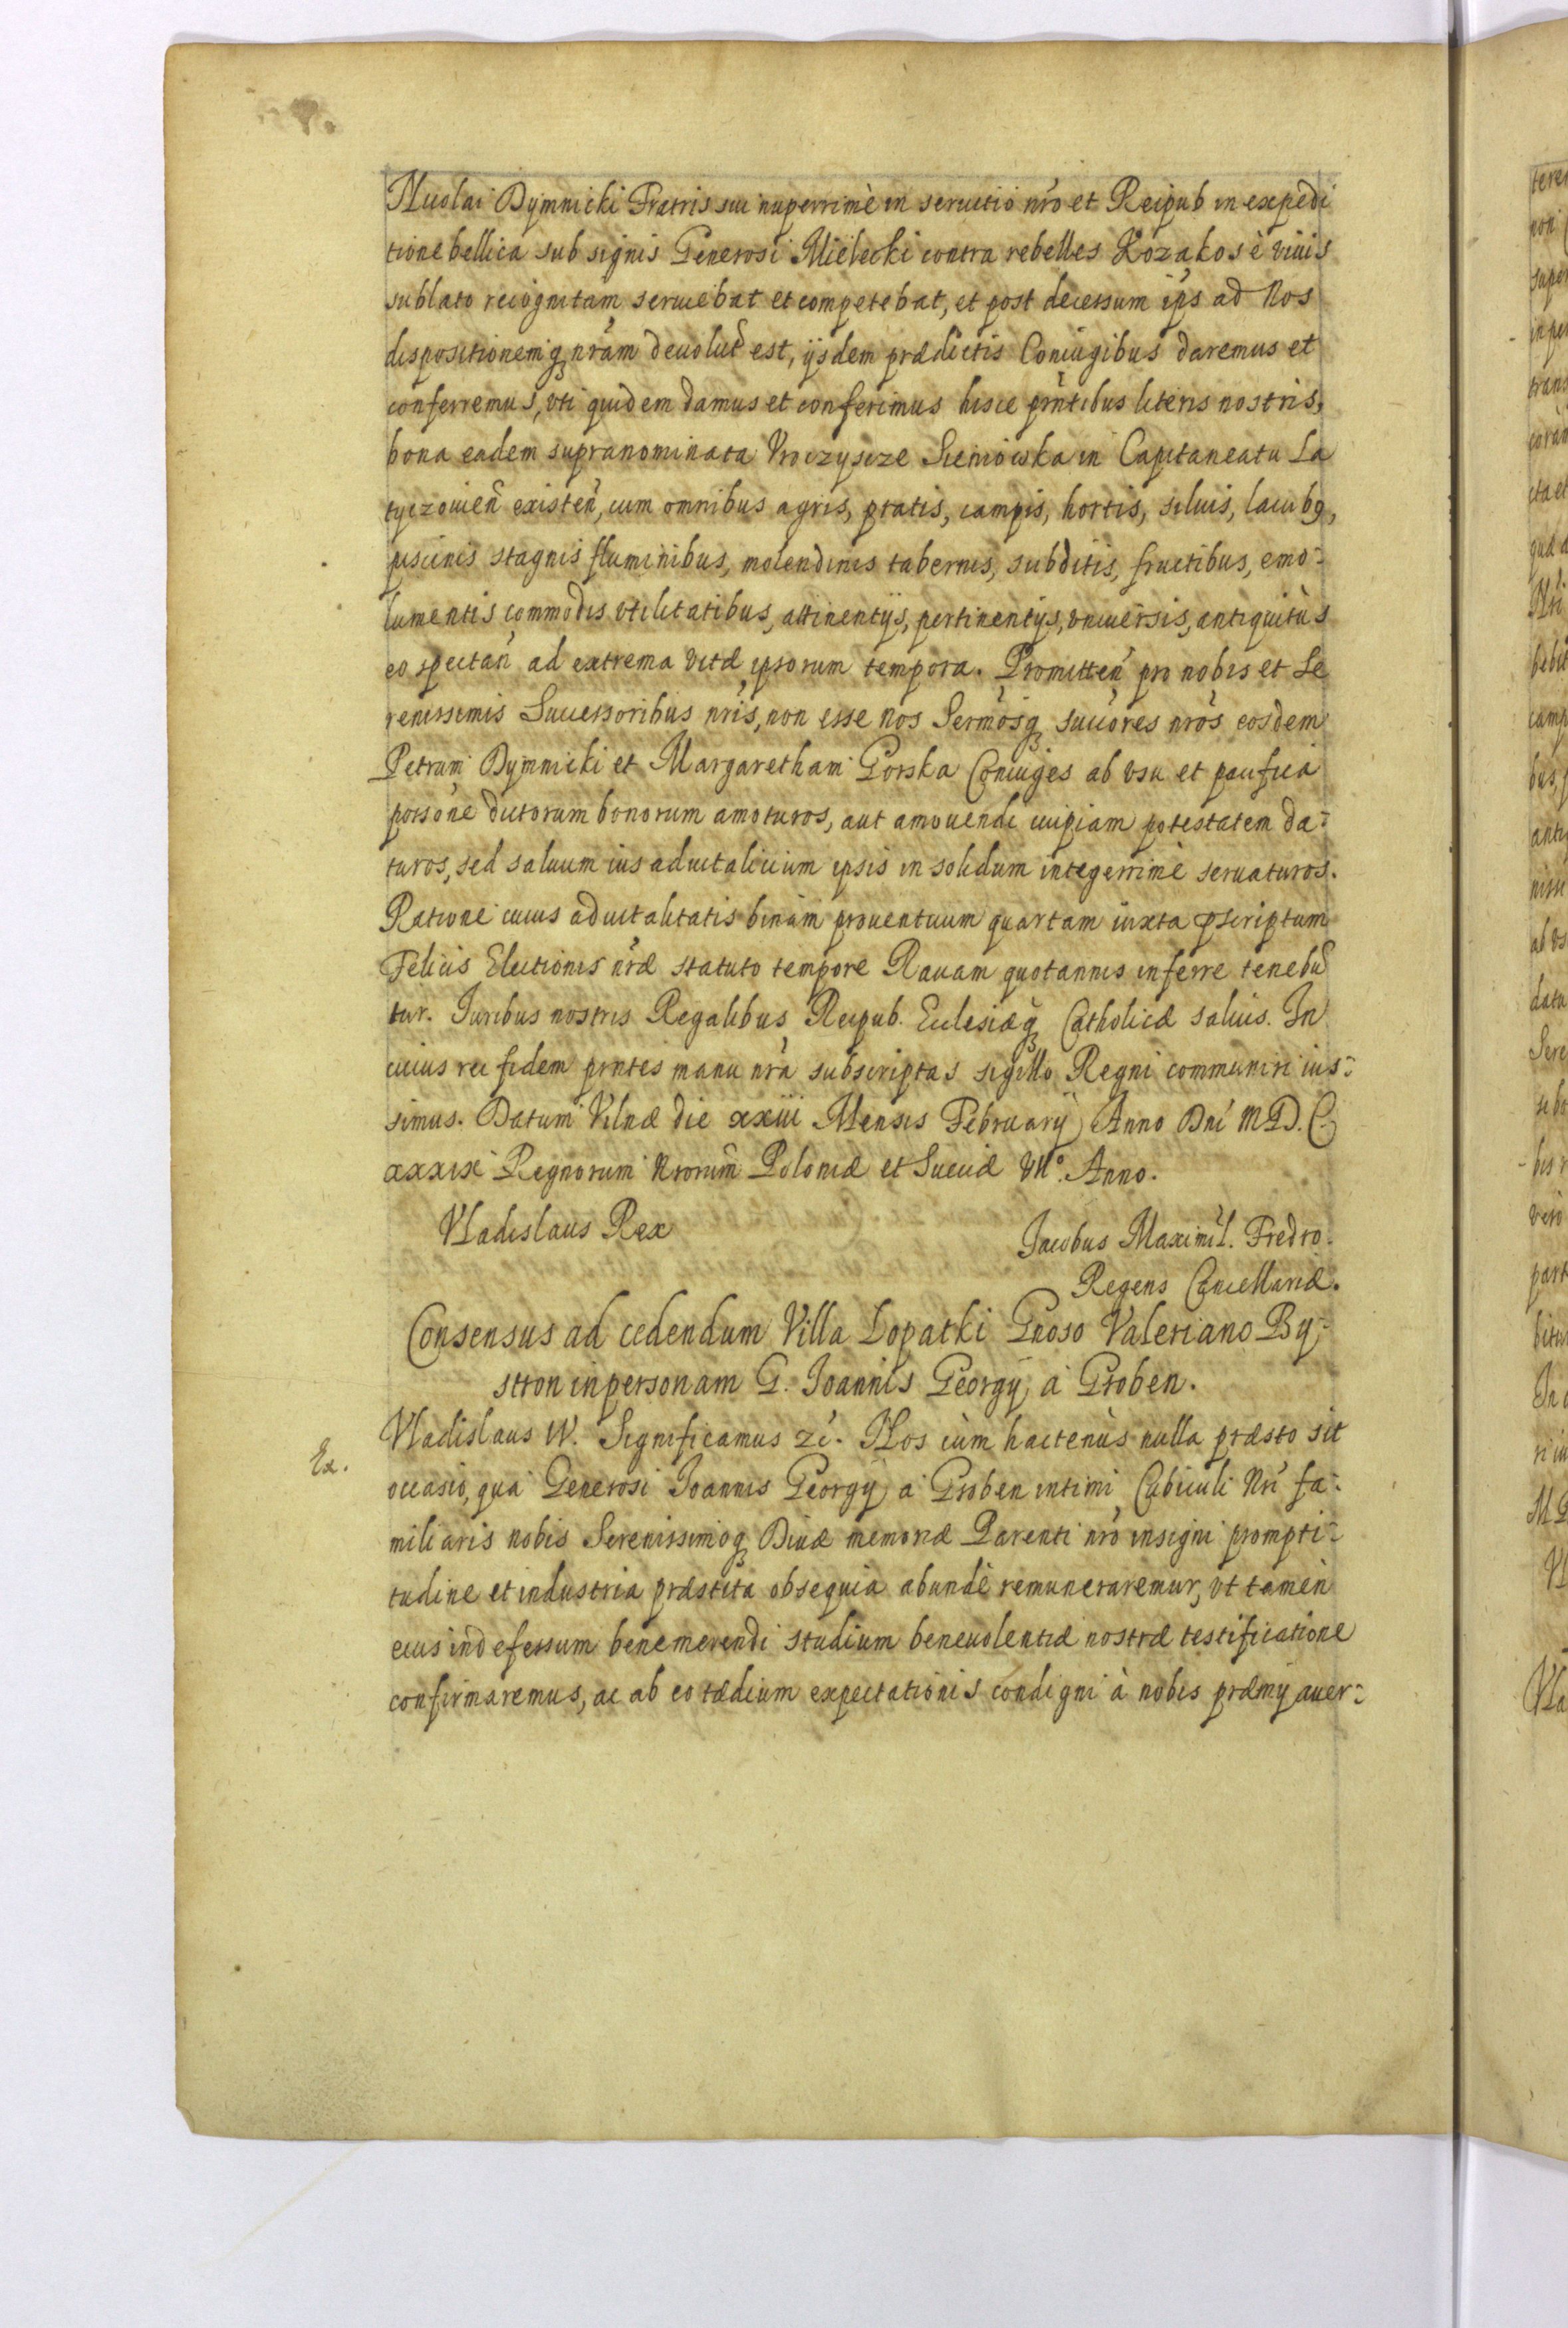 Nicolai Dymnicki Fratris sui nuperrimè in seruitio nrõ et Reipub in expedi
tione bellica sub signis Generosi Mielecki contra rebelles Kozakos è viuis
sublato recognitam seruiebat et competebat, et post decessum ips ad Nos
dispositionemq nrãm deuolut̃ est, ijsdem prædictis Coniugibus daremus et
conferremus, vti quidem damus et conferimus hisce prñtibus literis nostris,
bona eadem supranominata Vroczyscze Sieniowska in Capitaneatu La
tyczouieñ existeñ, cum omnibus agris, pratis, campis, hortis, siluis, lacubq,
piscinis stagnis fluminibus, molendinis tabernis, subditis, fructibus, emo:
lumentis commodis vtilitatibus, attinentijs, pertinentijs, vniuersis, antiquitùs
eo spectañ ad extrema vitæ ipsorum tempora. Promitteñ pro nobis et Se
renissimis Successoribus nrĩs, non esse nos Sermõsq succõres nrõs eosdem
Petrum Dymnicki et Margaretham Gorska Coniuges ab vsu et paċifica
possõne dictorum bonorum amoturos, aut amouendi cuipiam potestatem da:
turos, sed saluum ius aduitalicium ipsis in solidum integerrimè seruaturos.
Ratione cuius aduitalitatis binam prouentuum quartam iuxta pscriptum
Felicis Electionis nræ̃ statuto tempore Rauam quotannis inferre tenebũ
tur. Juribus nostris Regalibus Reipub. Ecclesiæq Catholicæ saluis. In
cuius rei fidem prñtes manu nrã subscriptas sigillo Regni communiri ius:
simus. Datum Vilnæ die xxiii Mensis February Anno Dnĩ M.D.C.
xxxix Regnorum Nrorũm Poloniæ et Sueciæ VIIº. Anno.
Vladislaus Rex
Jacobus Maximil. Fredro.
Regens Cancellariæ.
Consensus ad cedendum Villa Lopatki Gnoso Valeriano By:
stron in personam G. Joannis Georgij à Groben.
Ex.
Vladislaus IV. Significamus zc̃. Nos cùm hactenùs nulla præsto sit
occasio, quà Generosi Joannis Georgij à Groben intimi Cubiculi Nrĩ fa:
miliaris nobis Serenissimoq Diuæ memoriæ Parenti nrõ insigni prompti:
tudine et industria præstita obsequia abundè remuneraremur, vt tamen
eius indefessum benemerendi studium beneuolentiæ nostræ testificatione
confirmaremus, ac ab eo tædium expectationis condigni à nobis præmij auer: